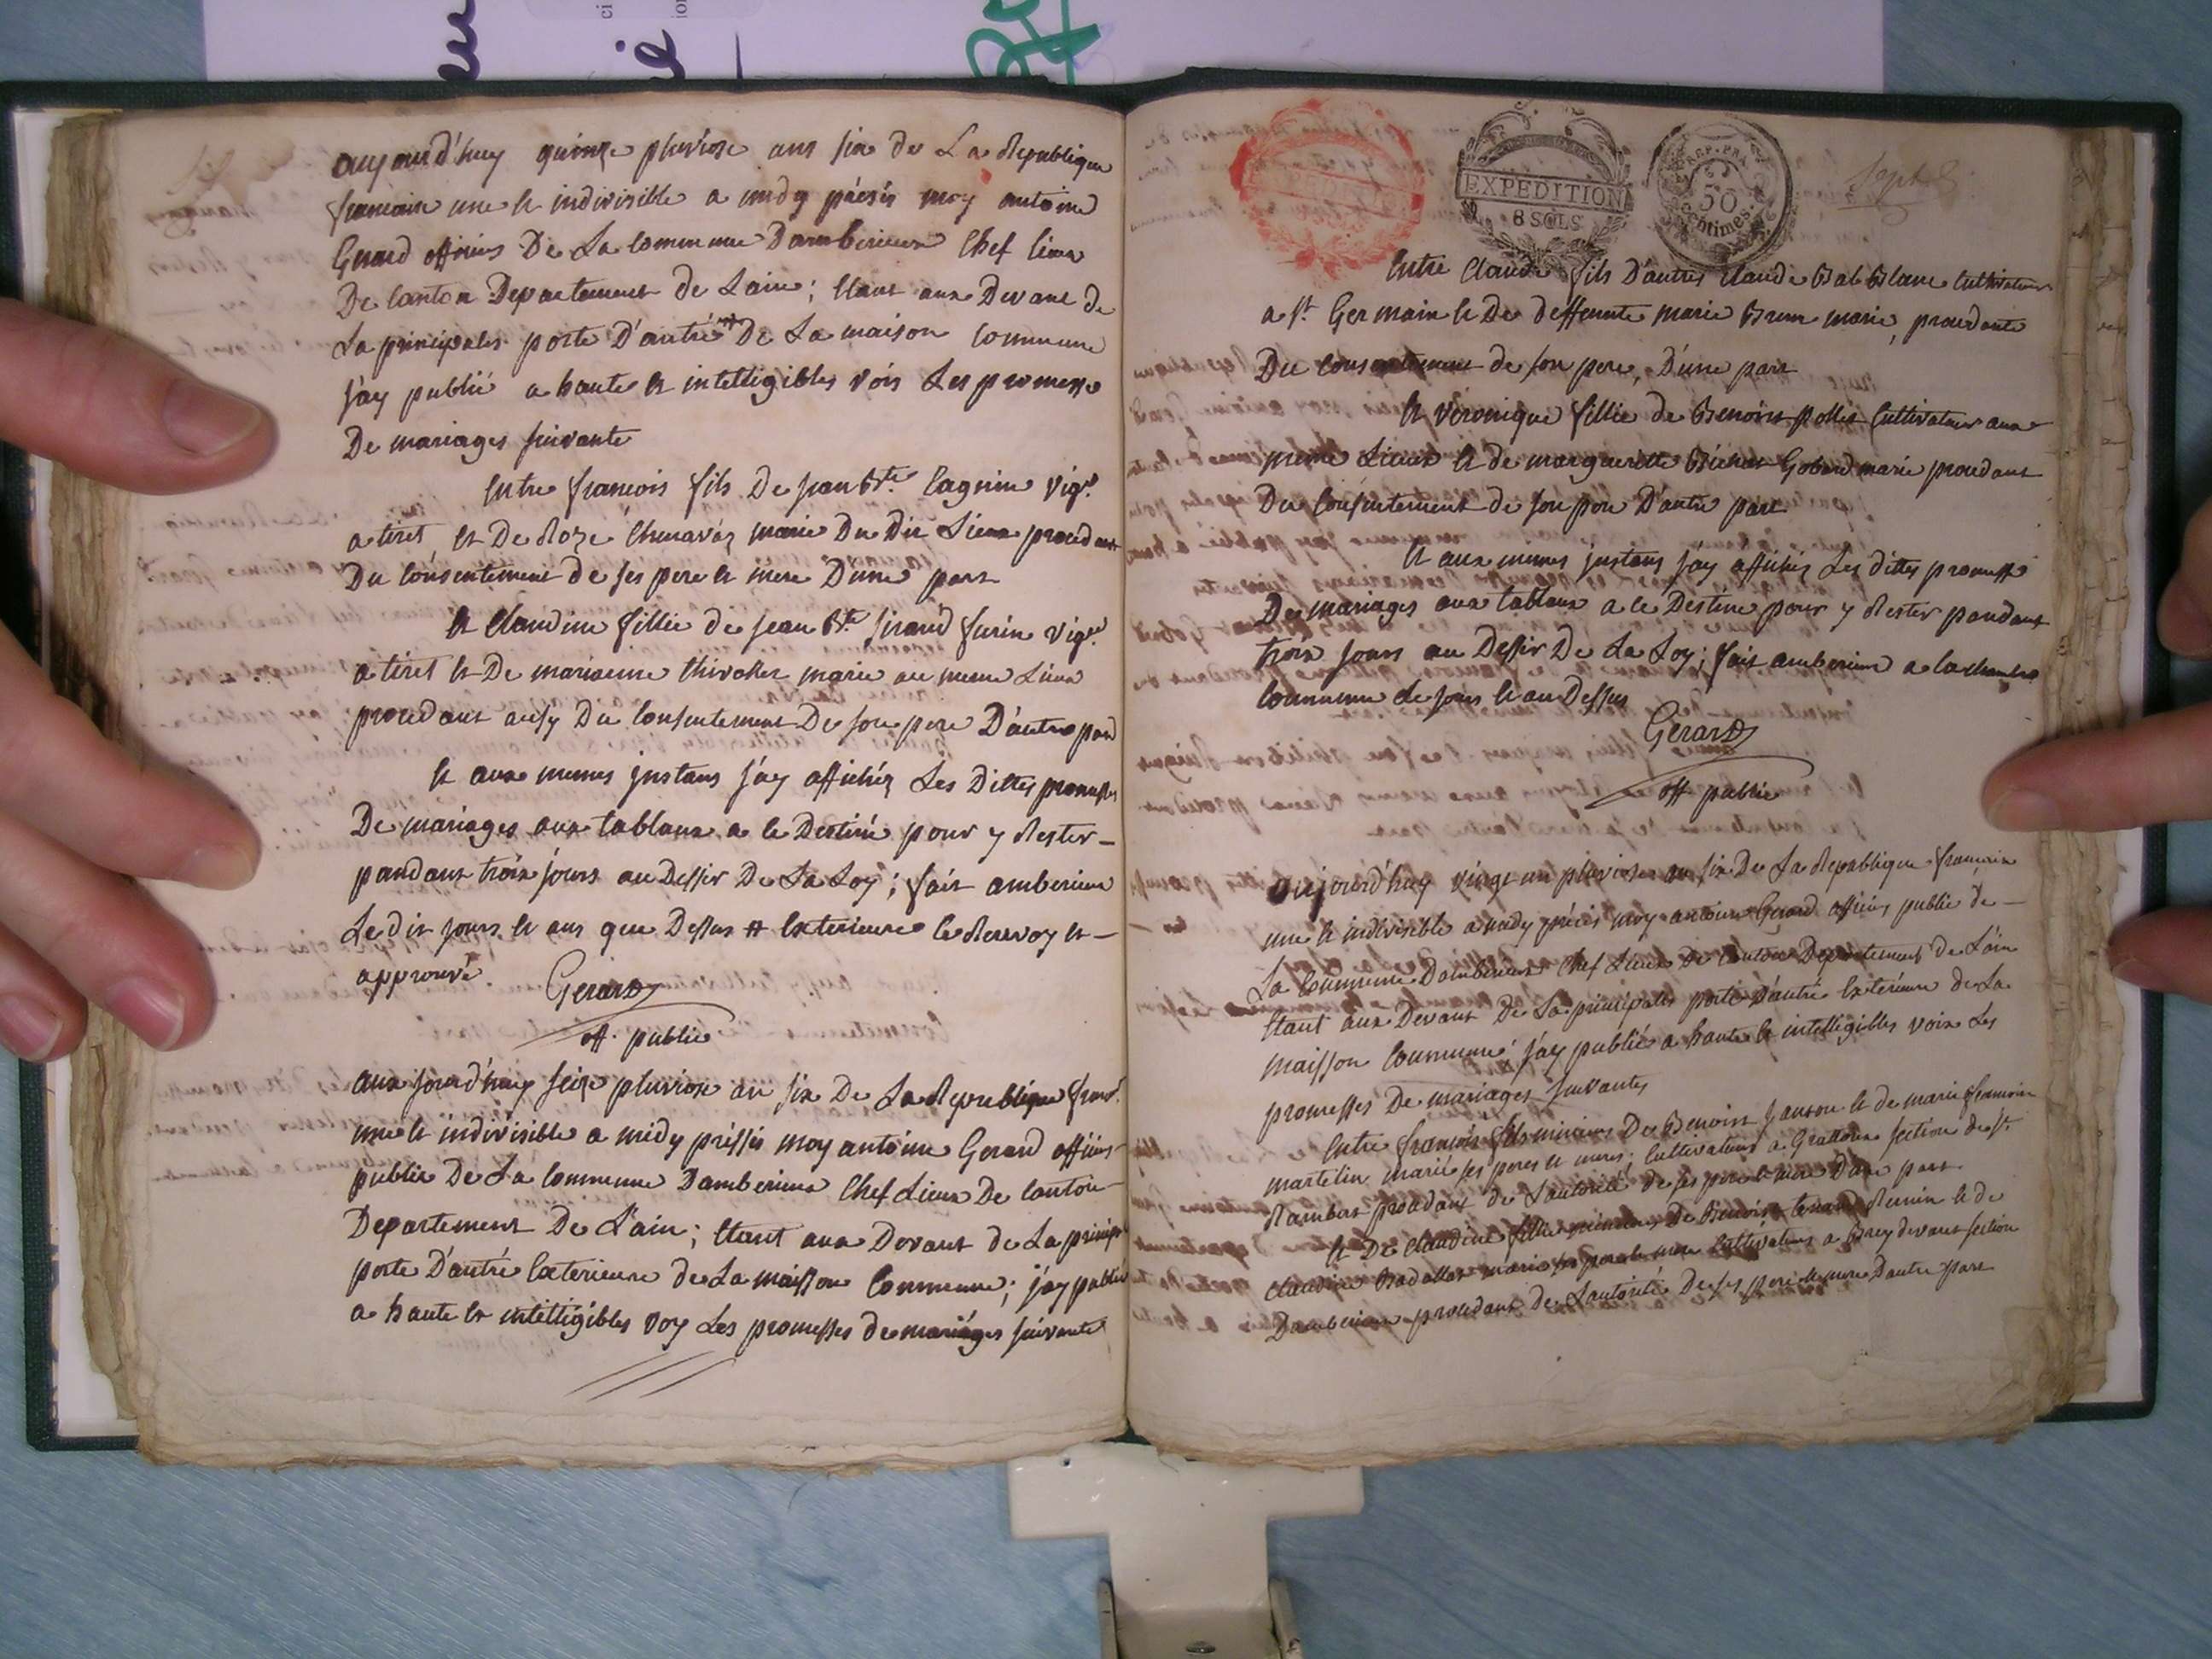 aujourd'huy quinze pluviose ans six de La Republique
francaise une et indivisible a midy précis moy antoine
Gerard officies De La Commune Damberieux Chef lieux
De Canton Departement de Lain; Etant aux Devant de
La principales porte D'antré # De La maison Commune
j'ay publié a haute et intelligibles vois Les promesse
De mariages suivante
Entre francois fils De jean Bte. Cagnin vign
a tiret et De Roze Chenavaz marie Du Dit Lieux procedant
Du Consentement de ses pere et mere D'une part
Et Claudine fillie de jean Bte sirand furin vign
a tiret et De marianne thivollet marie au meme Lieux
procedant ausy Du Consentement De son pere D'autre part
Et aux memes jnstans j'ay affichez Les Dittes promesses
De mariages aux tablaux a ce Destiné pour y Rester
pandant trois jours au Dessir De La Loy; fait amberieux
Le dit jours et ans que Dessus # Exterieure ce Renvoy et
approuvé.
Gerard
off. public
aux jourd'huy seize pluviose an six De La Republique franc.
une et indivisible a midy préssis moy antoine Gerard officies
public De La Commune Damberieux Chef Lieux De Canton
Departement De L'ain; Etant aux Devant de La princip
porte D'antré Exterieure de La maisson Commune; j'ay publié
a haute et intelligibles voy Les promesses de mariages suivante
EXPEDITION
8 SOLS
REP. FRA
50
centimes.
Sept
Entre Claude fils D'autres Claude Bab Blanc Cultivateur
a St. Germain et De deffunte marie Brun marie, procedante
Du Consentement de son pere, D'une part
Et veronique fillie de Benoist pollet Cultivateur aux
meme Lieux et de margueritte Gobard marie procedant
Du Consentement de son pere D'autre part
Et aux memes jnstans j'ay affichez Les dittes promesse
De mariages aux tablaux a ce Destine pour y Rester pandant
trois jours au Dessir De La Loy; fait amberieux a la chambre
Commune Le jours et an Dessus
Gerard
off. public
aujourd'huy vingt un pluviose an six De La Republique francaise
une et indivisible a midy précis moy antoine Gerard officies public de
La Commune Damberieux Chef Lieux De Canton Departement de L'ain
Etant aux Devant De La principales porte D'antré Exterieure de La
maisson Commune; j'ay publié a haute et intelligibles voix Les
promesses De mariages suivantes
Entre francois fils mineurs De Benoist janton et de marie francoise
martelin marié ses peres et meres; Cultivateurs a Grattoux section de St.
Rambert procedant de L'autorité de ses pere et mere D'une part
Et De Claudine fillie mineurs De Benoist tenand Remin et de
Claudine Badollat marie ses pere et mere Cultivateurs a Breydevant section
Damberieux procedant de L'autorité De ses pere et mere D'autre part